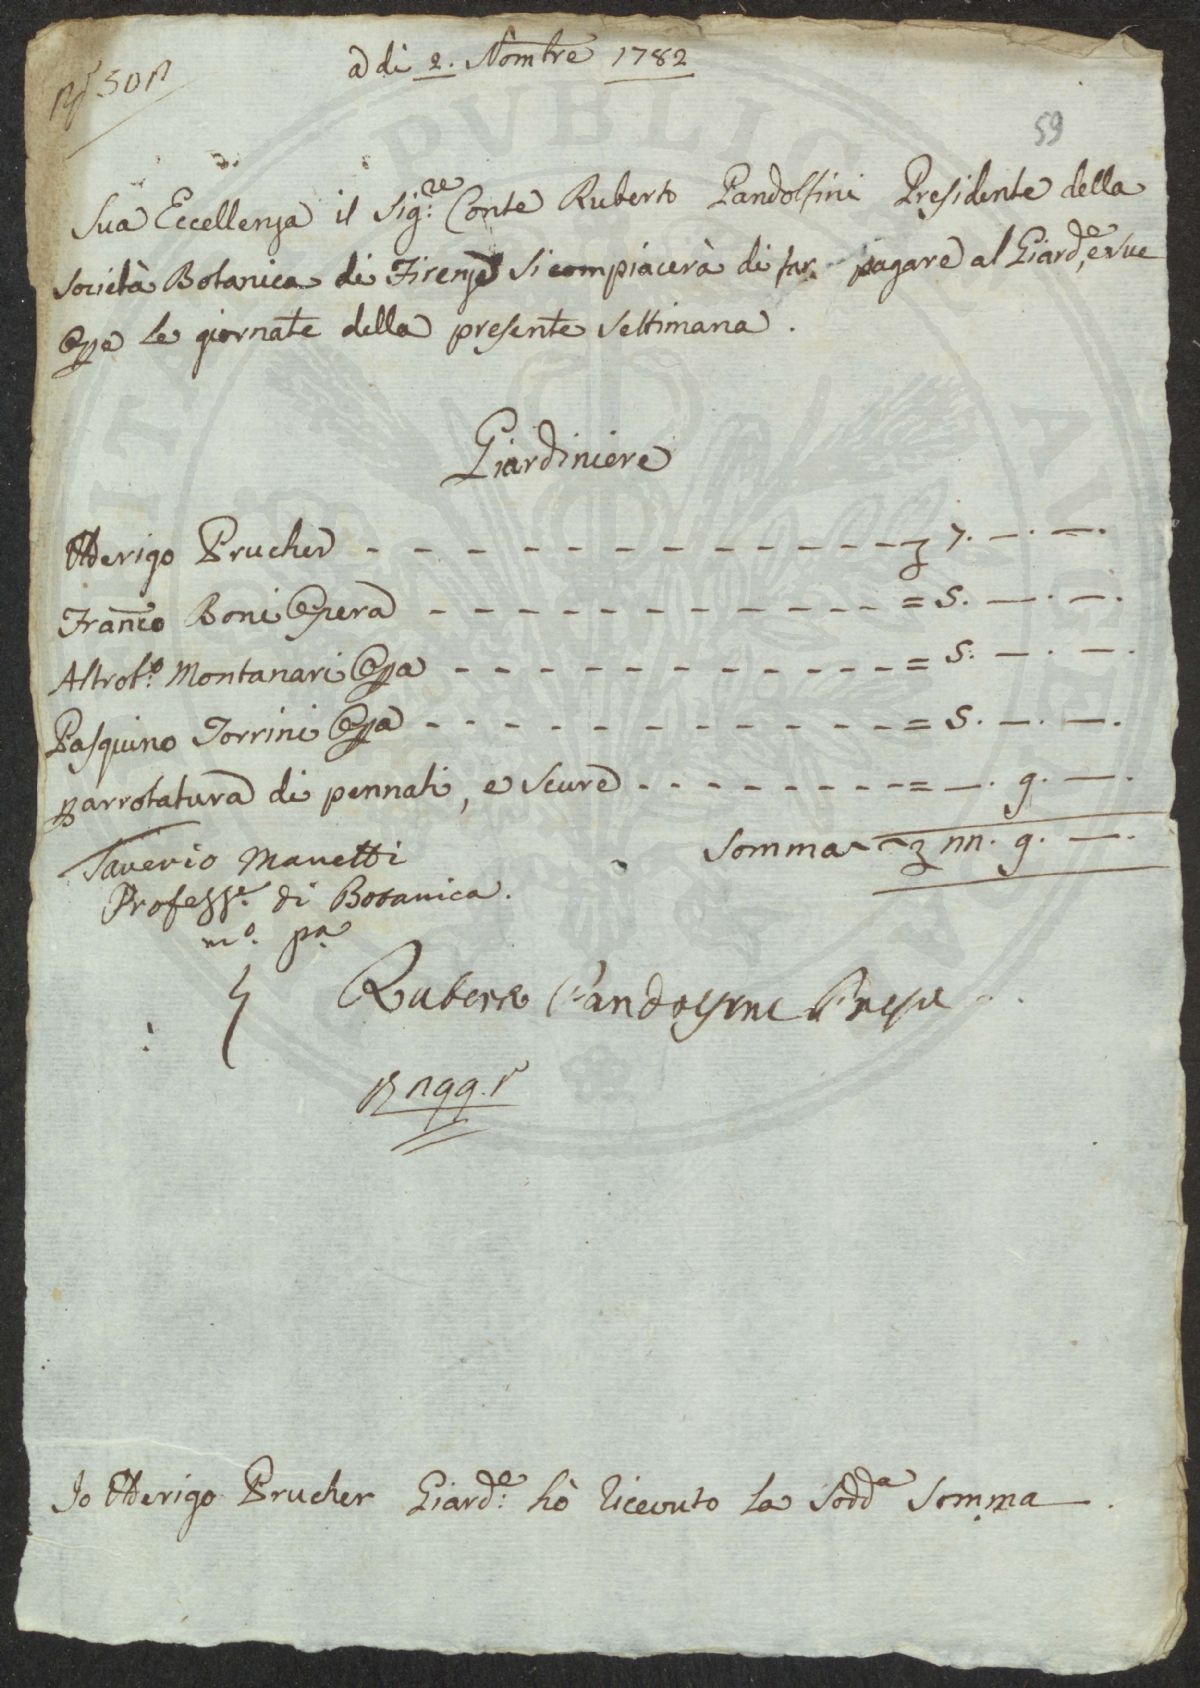 a di 2. Nombre 1782
59
Sua Eccellenza il Sig:re Conte Ruberto Pandolfini Presidente della
Società Botanica di Firenze si compiacerà di far pagare al Giard.e, e sue
Opa le giornate della presente Settimana.
Giardiniere
Prucher 7. —. —.
Franco Boni Opera = 5. —. —.
Montanari Opa = 5. —. —.
Pasquino Torrini Opa = 5. —. —.
p arrotatura di pennati, e scure = —. 9. —.
Somma 9. —.
Saverio Manetti
Profess.e di Botanica.
m.o p.a
Ruberto Pandolfini Preside
Io Prucher Giard:e hò ricevuto la Sodd.a Somma.